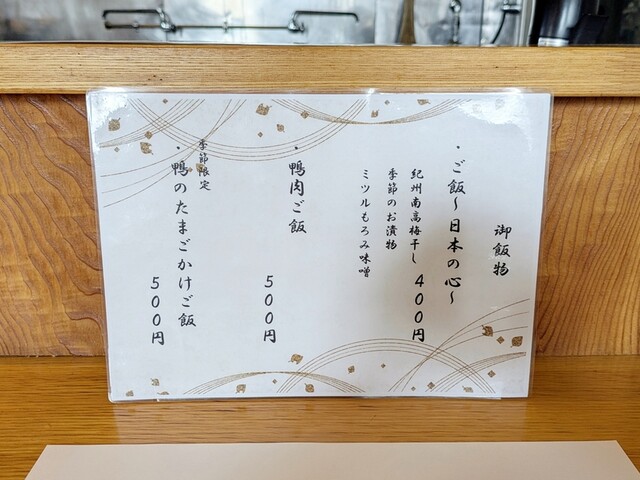 御飯物
・ご飯〜日本の心〜
400円
紀州南高梅干し
季節のお漬物
ミツルもろみ味噌
・鴨肉ご飯
500円
季節限定
・鴨のたまごかけご飯
500円